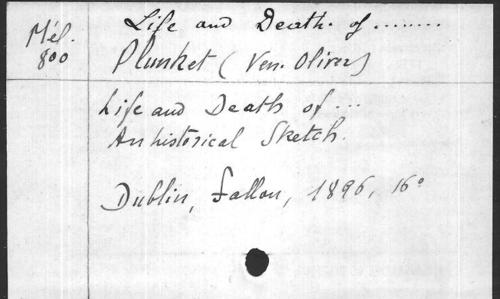 Life and Death of ........
Mél.
800
Plunket (Ven. Oliver)
Life and Death of ...
An historical Sketch.
Dublin, Fallon, 1896, 16°